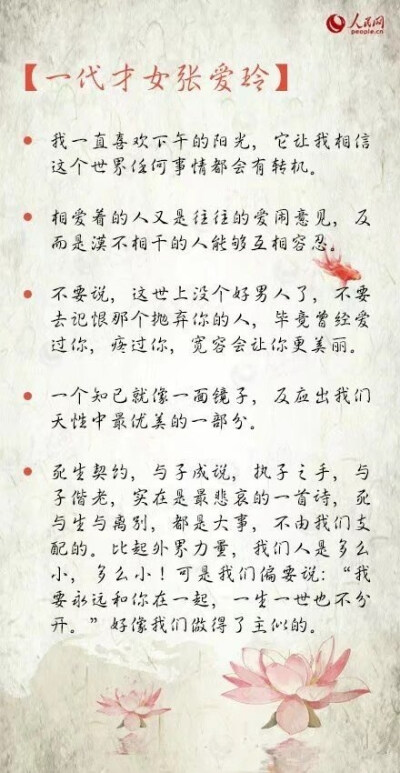 人民网
people.cn
【一代才女张爱玲】
• 我一直喜欢下午的阳光，它让我相信
这个世界任何事情都会有转机。
• 相爱着的人又是往往的爱闹意见，反
而是漠不相干的人能够互相容忍。
• 不要说，这世上没个好男人了，不要
去记恨那个抛弃你的人，毕竟曾经爱
过你，疼过你，宽容会让你更美丽。
• 一个知已就像一面镜子，反应出我们
天性中最优美的一部分。
• 死生契约，与子成说，执子之手，与
子偕老，实在是最悲哀的一首诗，死
与生与离别，都是大事，不由我们支
配的。比起外界力量，我们人是多么
小，多么小！可是我们偏要说：“我
要永远和你在一起，一生一世也不分
开。”好像我们做得了主似的。